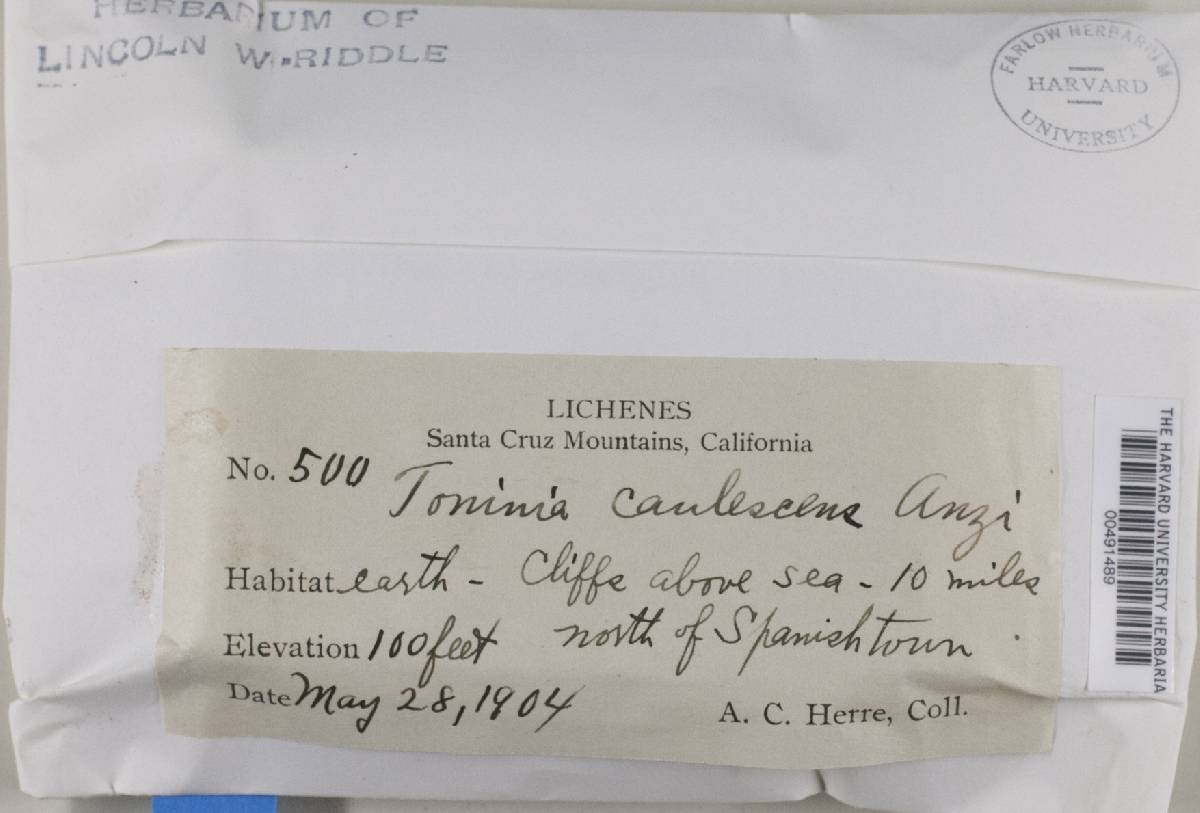 HERBARIUM OF
LINCOLN W. RIDDLE
FARLOW HERBARIUM
HARVARD
UNIVERSITY
LICHENES
Santa Cruz Mountains, California
No. 500 Toninia caulescens Anzi
Habitat earth - Cliffs above sea - 10 miles
Elevation 100 feet north of Spanishtown.
Date May 28, 1904 A. C. Herre, Coll.
THE HARVARD UNIVERSITY HERBARIA
00491489